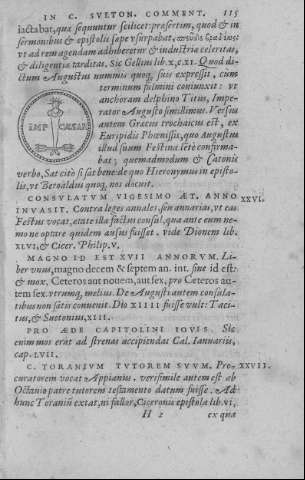 IN C. SVETON. COMMENT. 115
iactabat, quæ sequuntur scilicet: præsertim, quod & in
sermonibus & epistolis sæpe vsurpabat, σπεῦδε βραδέως
vt ad rem agendam adhiberetur & industriæ celeritas,
& diligentiæ tarditas. Sic Gellius lib.x.c.XI. Quod di-
ctum Augustus nummis quoq; suis expressit, cum
terminum fulmini coniunxit: vt
anchoram delphino Titus, Impe-
rator Augusto simillimus. Versus
autem Græcus trochaicus est, ex
Euripidis Phœnissis, quo Augustus
illud suum Festina lentè confirma-
bat; quemadmodum & Catonis
IMP CAESAR
verbo, Sat citò si sat bene: de quo Hieronymus in episto-
lis, vt Beroaldus quoq; nos docuit.
CONSVLATVM VIGESIMO ÆT. ANNO XXVI.
INVASIT. Contra leges annales: seu annarias, vt eas
Festus vocat, ante illa factus consul, quæ ante eum ne-
mo ne optare quidem ausus fuisset. vide Dionem lib.
XLVI, & Cicer. Philip.V.
MAGNO ID EST XVII ANNORVM. Li-
ber vnus, magno decem & septem an. int. sine id est:
& mox, Ceteros aut nouem, aut sex, pro Ceteros au-
tem sex. vtrumq; melius. De Augusti autem consula-
tibus non satis conuenit. Dio XIIII fuisse vult: Taci-
tus, & Suetonius, XIII.
PRO ÆDE CAPITOLINI IOVIS. Sic
enim mos erat ad strenas accipiendas Cal. Ianuariis,
cap. LVII.
C. TORANIVM TVTOREM SVVM. Pro- XXVII.
curatorem vocat Appianus. verisimile autem est ab
Octauio patre tutorem testamento datum fuisse. Ad
hunc Toranium extat, ni fallor, Ciceronis epistola lib. VI,
H 2 ex qua